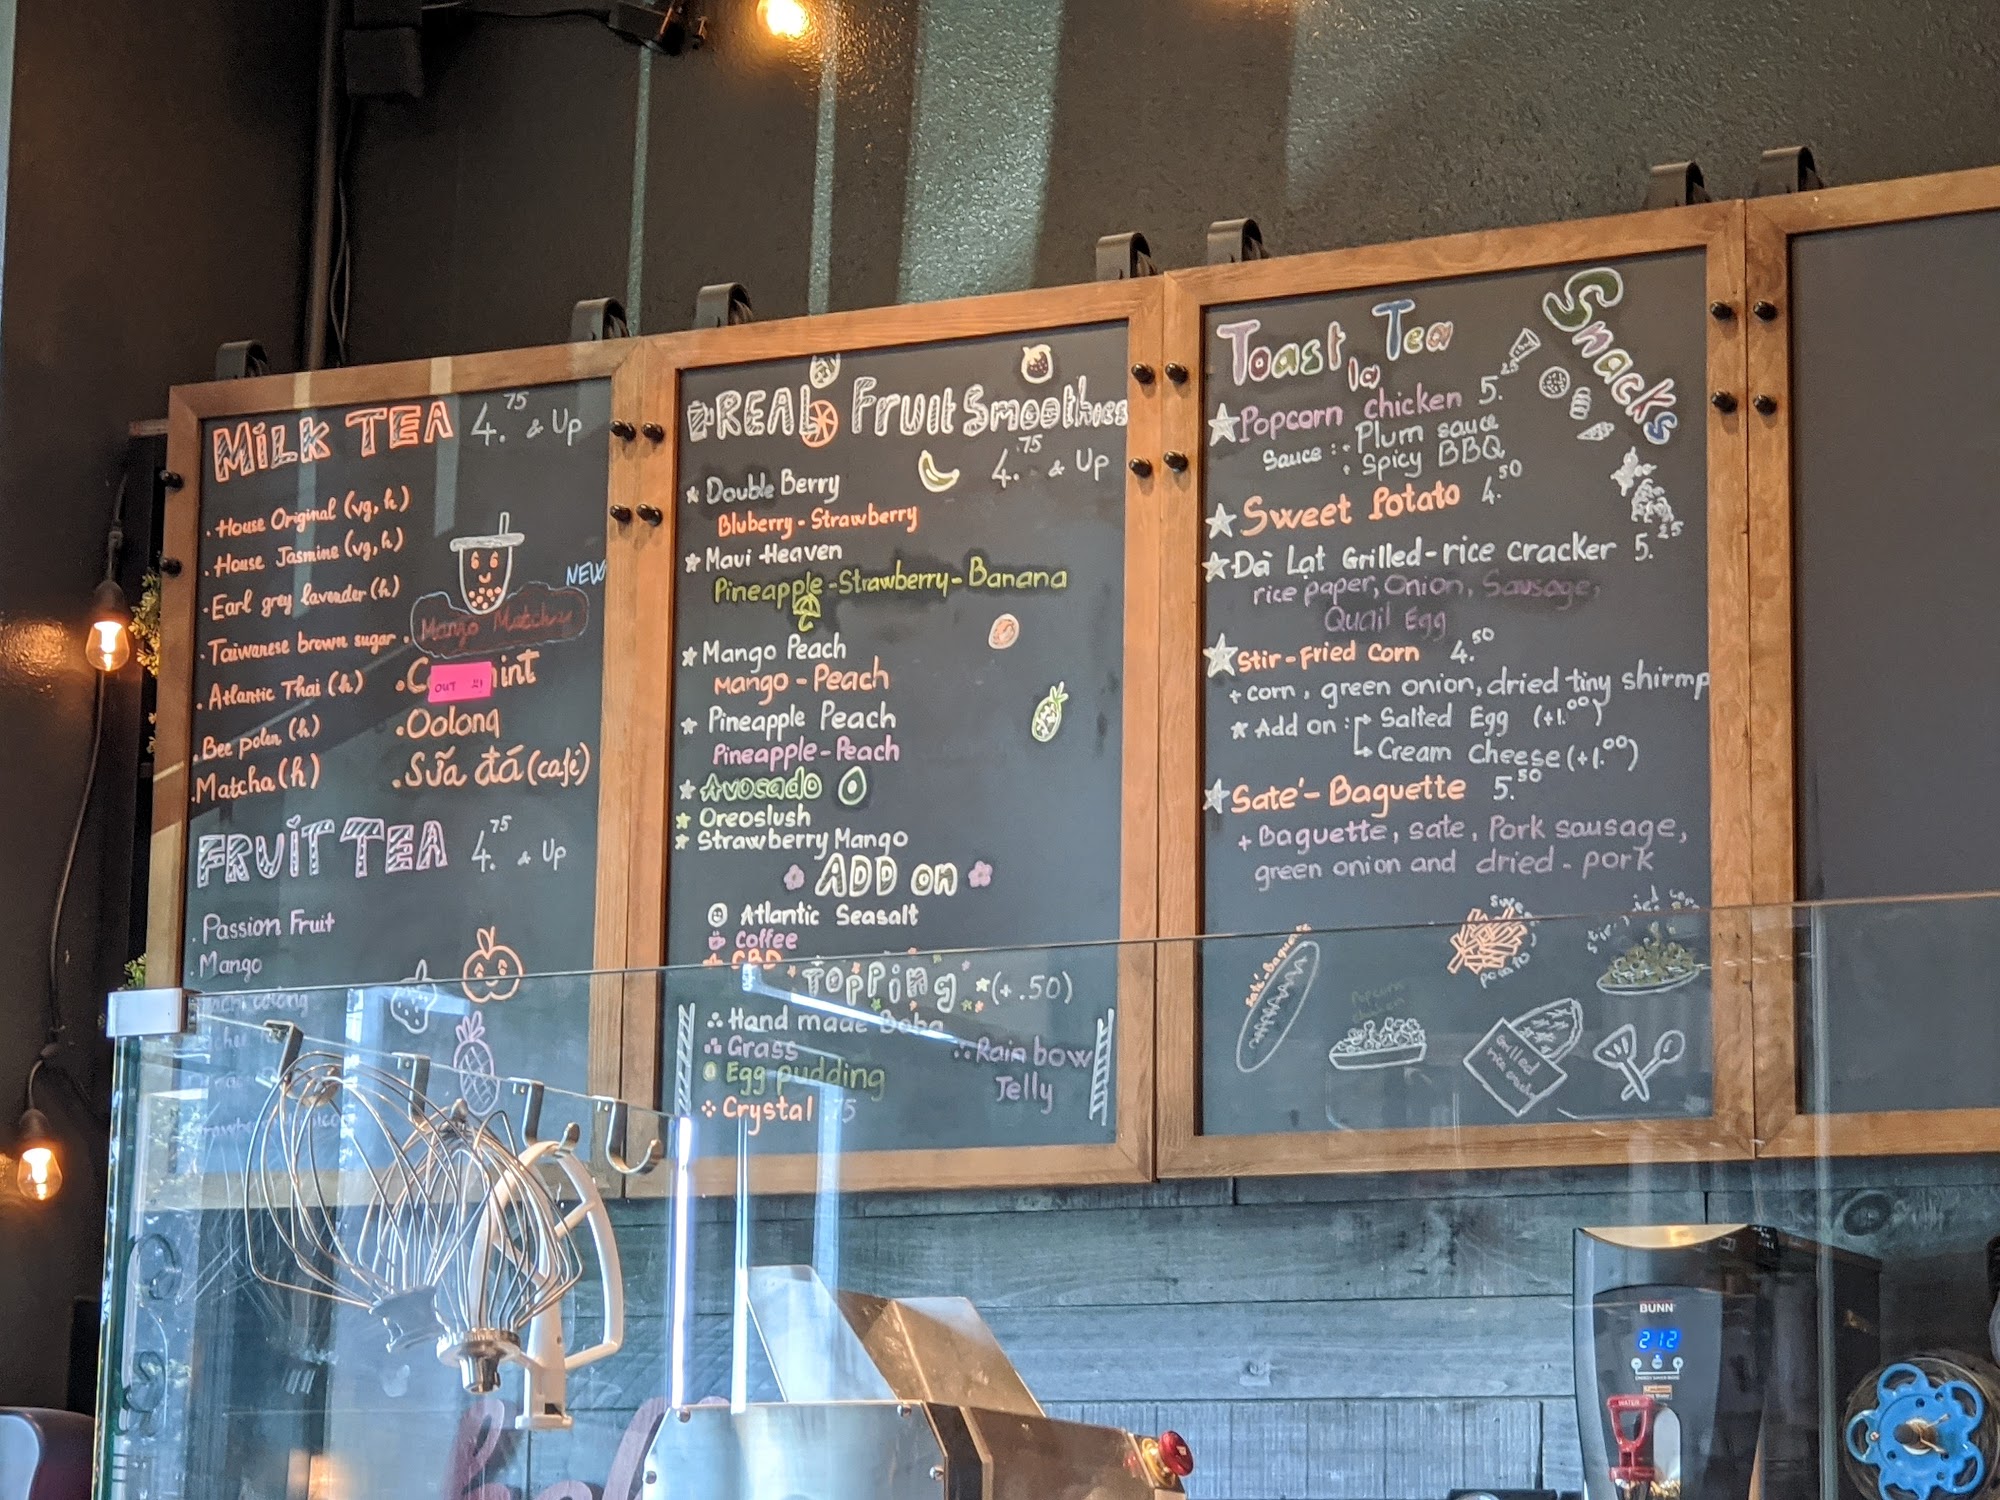 MiLK TEA 4.75 & Up
· House Original (vg, h)
· House Jasmine (vg, h)
· Earl grey lavender (h)
· Taiwanese brown sugar
· Atlantic Thai (h)
· Bee polen (h)
· Matcha (h)
NEW
· Mango Matchy
OUT
· Oolong
· Sữa đá (café)
FRUiT TEA 4.75 & Up
· Passion Fruit
· Mango
REAL Fruit Smoothies
4.75 & Up
Double Berry
Bluberry - Strawberry
Maui Heaven
Pineapple - Strawberry - Banana
Mango Peach
Mango - Peach
Pineapple Peach
Pineapple - Peach
Avocado
Oreoslush
Strawberry Mango
ADD on
Atlantic Seasalt
Coffee
CBD
Topping (+.50)
Hand made Boba
Grass
Egg pudding
Crystal
Rainbow
Jelly
Toast la Tea
Snacks
Popcorn chicken 5.25
Sauce : · Plum sauce
· Spicy BBQ
Sweet Potato 4.50
Đà Lạt Grilled-rice cracker 5.25
rice paper, Onion, Sausage,
Quail Egg
Stir-Fried Corn 4.50
+ corn, green onion, dried tiny shirmp
Add on : Salted Egg (+1.00)
Cream Cheese (+1.00)
Sate'- Baguette 5.50
+ Baguette, sate, Pork sausage,
green onion and dried - pork
Sate'-Baguette
Popcorn
Grilled
rice cracker
BUNN
212
WATER